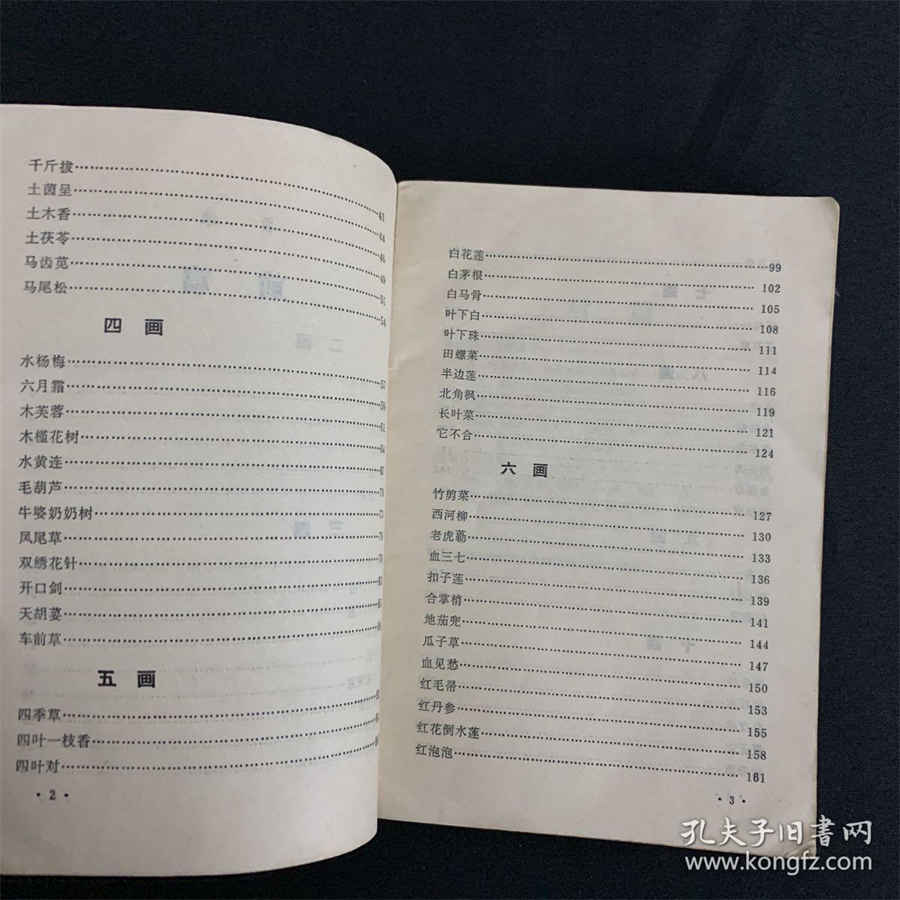 千斤拔
土茵呈
土木香
土茯苓
马齿苋
马尾松
四 画
水杨梅
六月霜
木芙蓉
木槿花树
水黄连
毛葫芦
牛婆奶奶树
凤尾草
双绣花针
开口剑
天胡荽
车前草
五 画
四季草
四叶一枝香
四叶对
·2·
白花莲 99
白茅根 102
白马骨 105
叶下白 108
叶下珠 111
田螺菜 114
半边莲 116
北角枫 119
长叶菜 121
它不合 124
六 画
竹剪菜 127
西河柳 130
老虎葂 133
血三七 136
扣子莲 139
合掌梢 141
地茄兜 144
瓜子草 147
血见愁 150
红毛帚 153
红丹参 155
红花倒水莲 158
红泡泡 161
·3·
孔夫子旧書网
www.kongfz.com